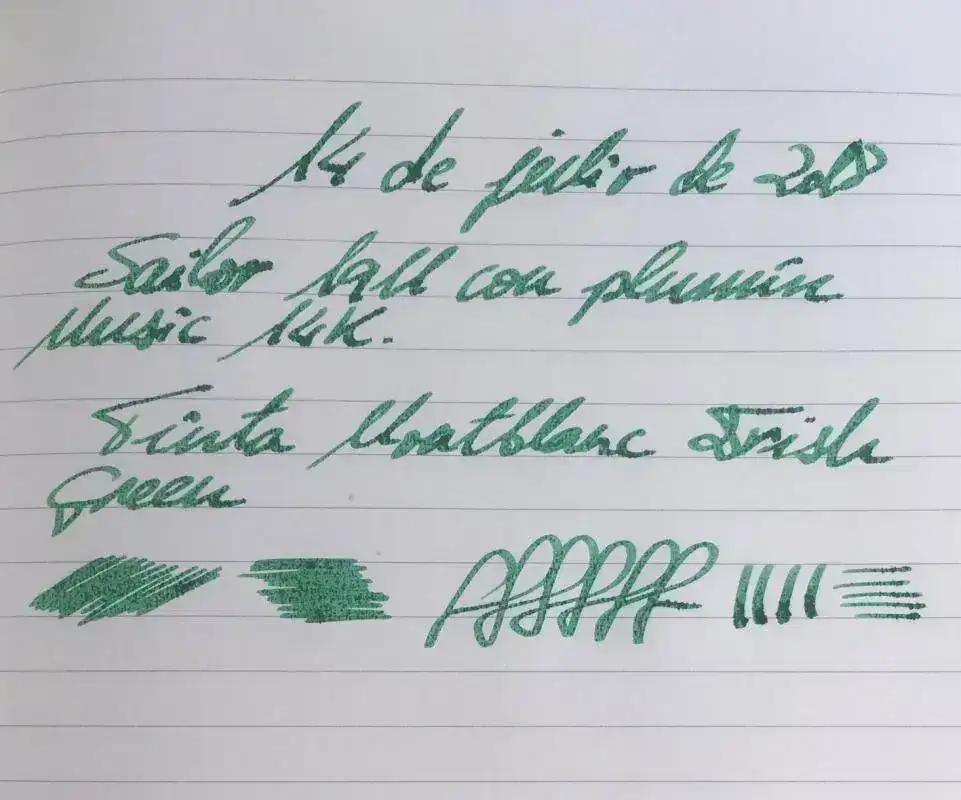 14 de julio de 2018
Sailor 1911 con plumín
Music 14K.
Tinta Montblanc Irish
Green